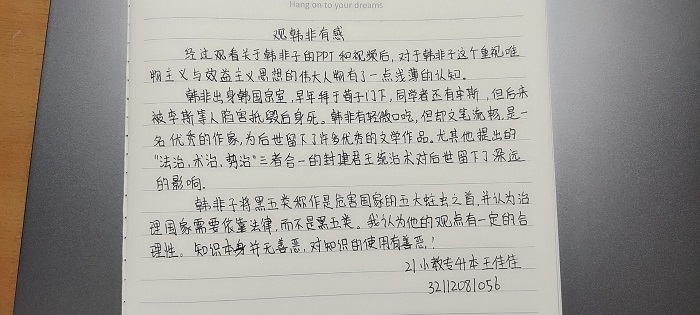 Hang on to your dreams
观韩非有感
经过观看关于韩非子的PPT和视频后,对于韩非子这个重视唯
物主义与效益主义思想的伟大人物有了一点浅薄的认知。
韩非出身韩国宗室,早年拜于荀子门下,同学者还有李斯,但后来
被李斯等人陷害诋毁后身死。韩非有轻微口吃,但却文笔流畅,是一
名优秀的作家,为后世留下了许多优秀的文学作品。尤其他提出的
"法治,术治,势治"三者合一的封建君王统治术对后世留下了深远
的影响.
韩非子将黑五类称作是危害国家的五大蛀虫之首,并认为治
理国家需要依靠法律,而不是黑五类。我认为他的观点有一定的合
理性。知识本身并无善恶,对知识的使用有善恶!
21小教专升本王佳佳
32112081056